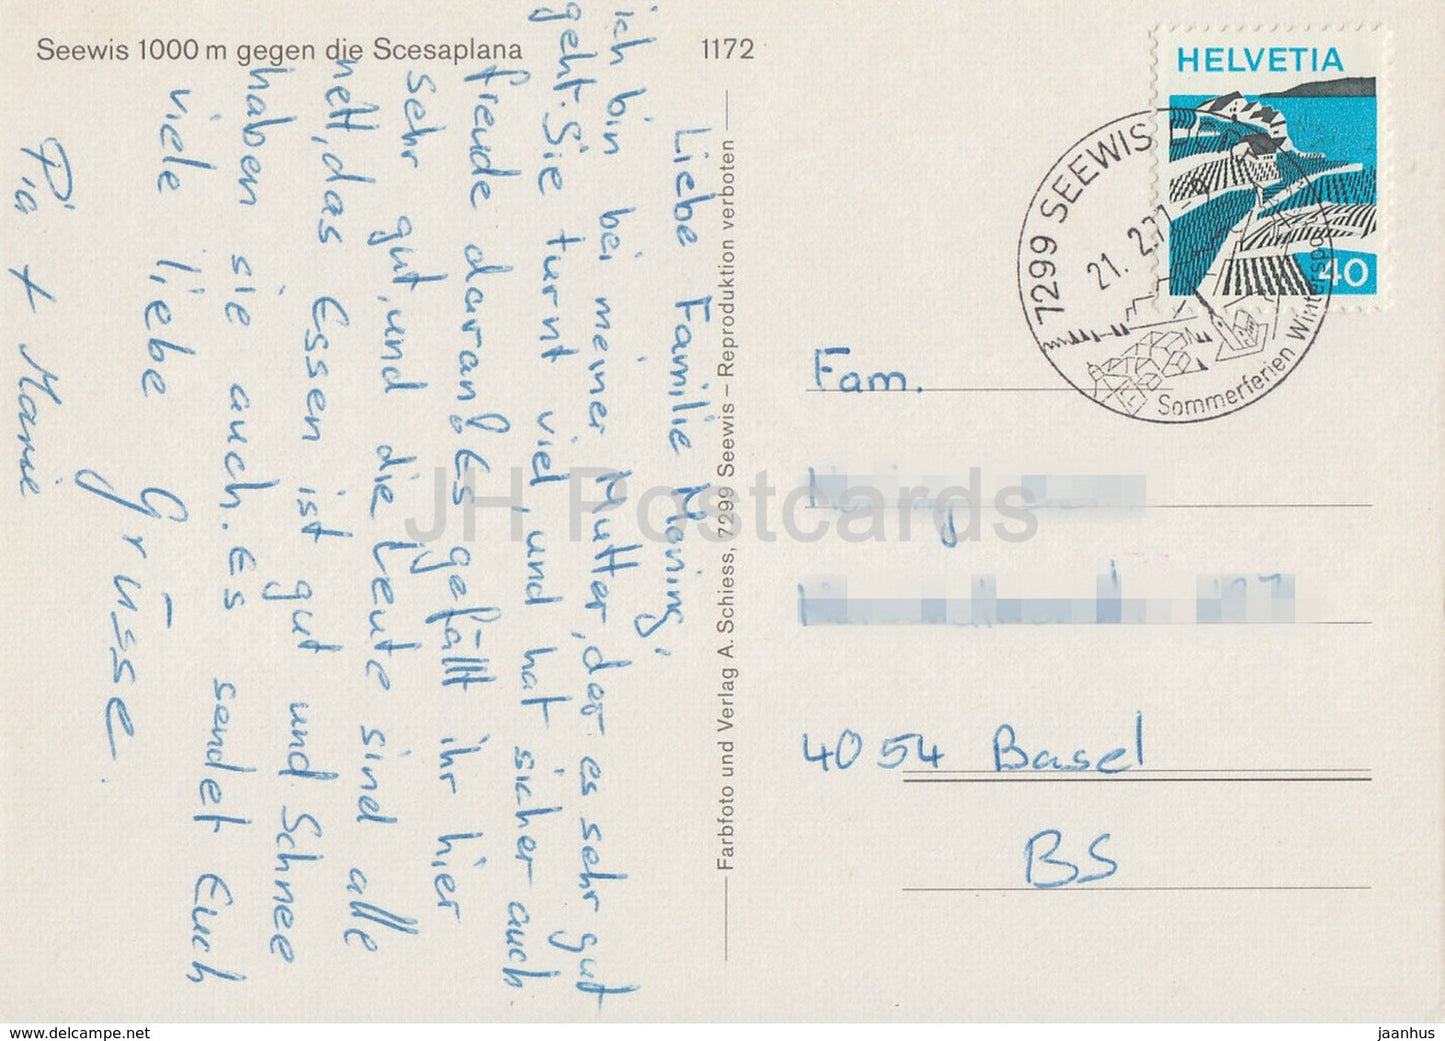 Seewis 1000 m gegen die Scesaplana
1172
HELVETIA
40
7299 SEEWIS
21. 2. 77
Sommerferien Wintersport
Liebe Familie
ich bin bei meiner Mutter, der es sehr gut
geht. Sie turnt viel, und hat sicher auch
freude daran. Es gefällt ihr hier
sehr gut, und die Leute sind alle
nett, das Essen ist gut und Schnee
haben sie auch. Es sendet Euch
viele liebe Grüsse.
Pia + Marie
Farbfoto und Verlag A. Schiess, 7299 Seewis – Reproduktion verboten
Fam.
4054 Basel
BS
JH Postcards
www.delcampe.net
jaanhus